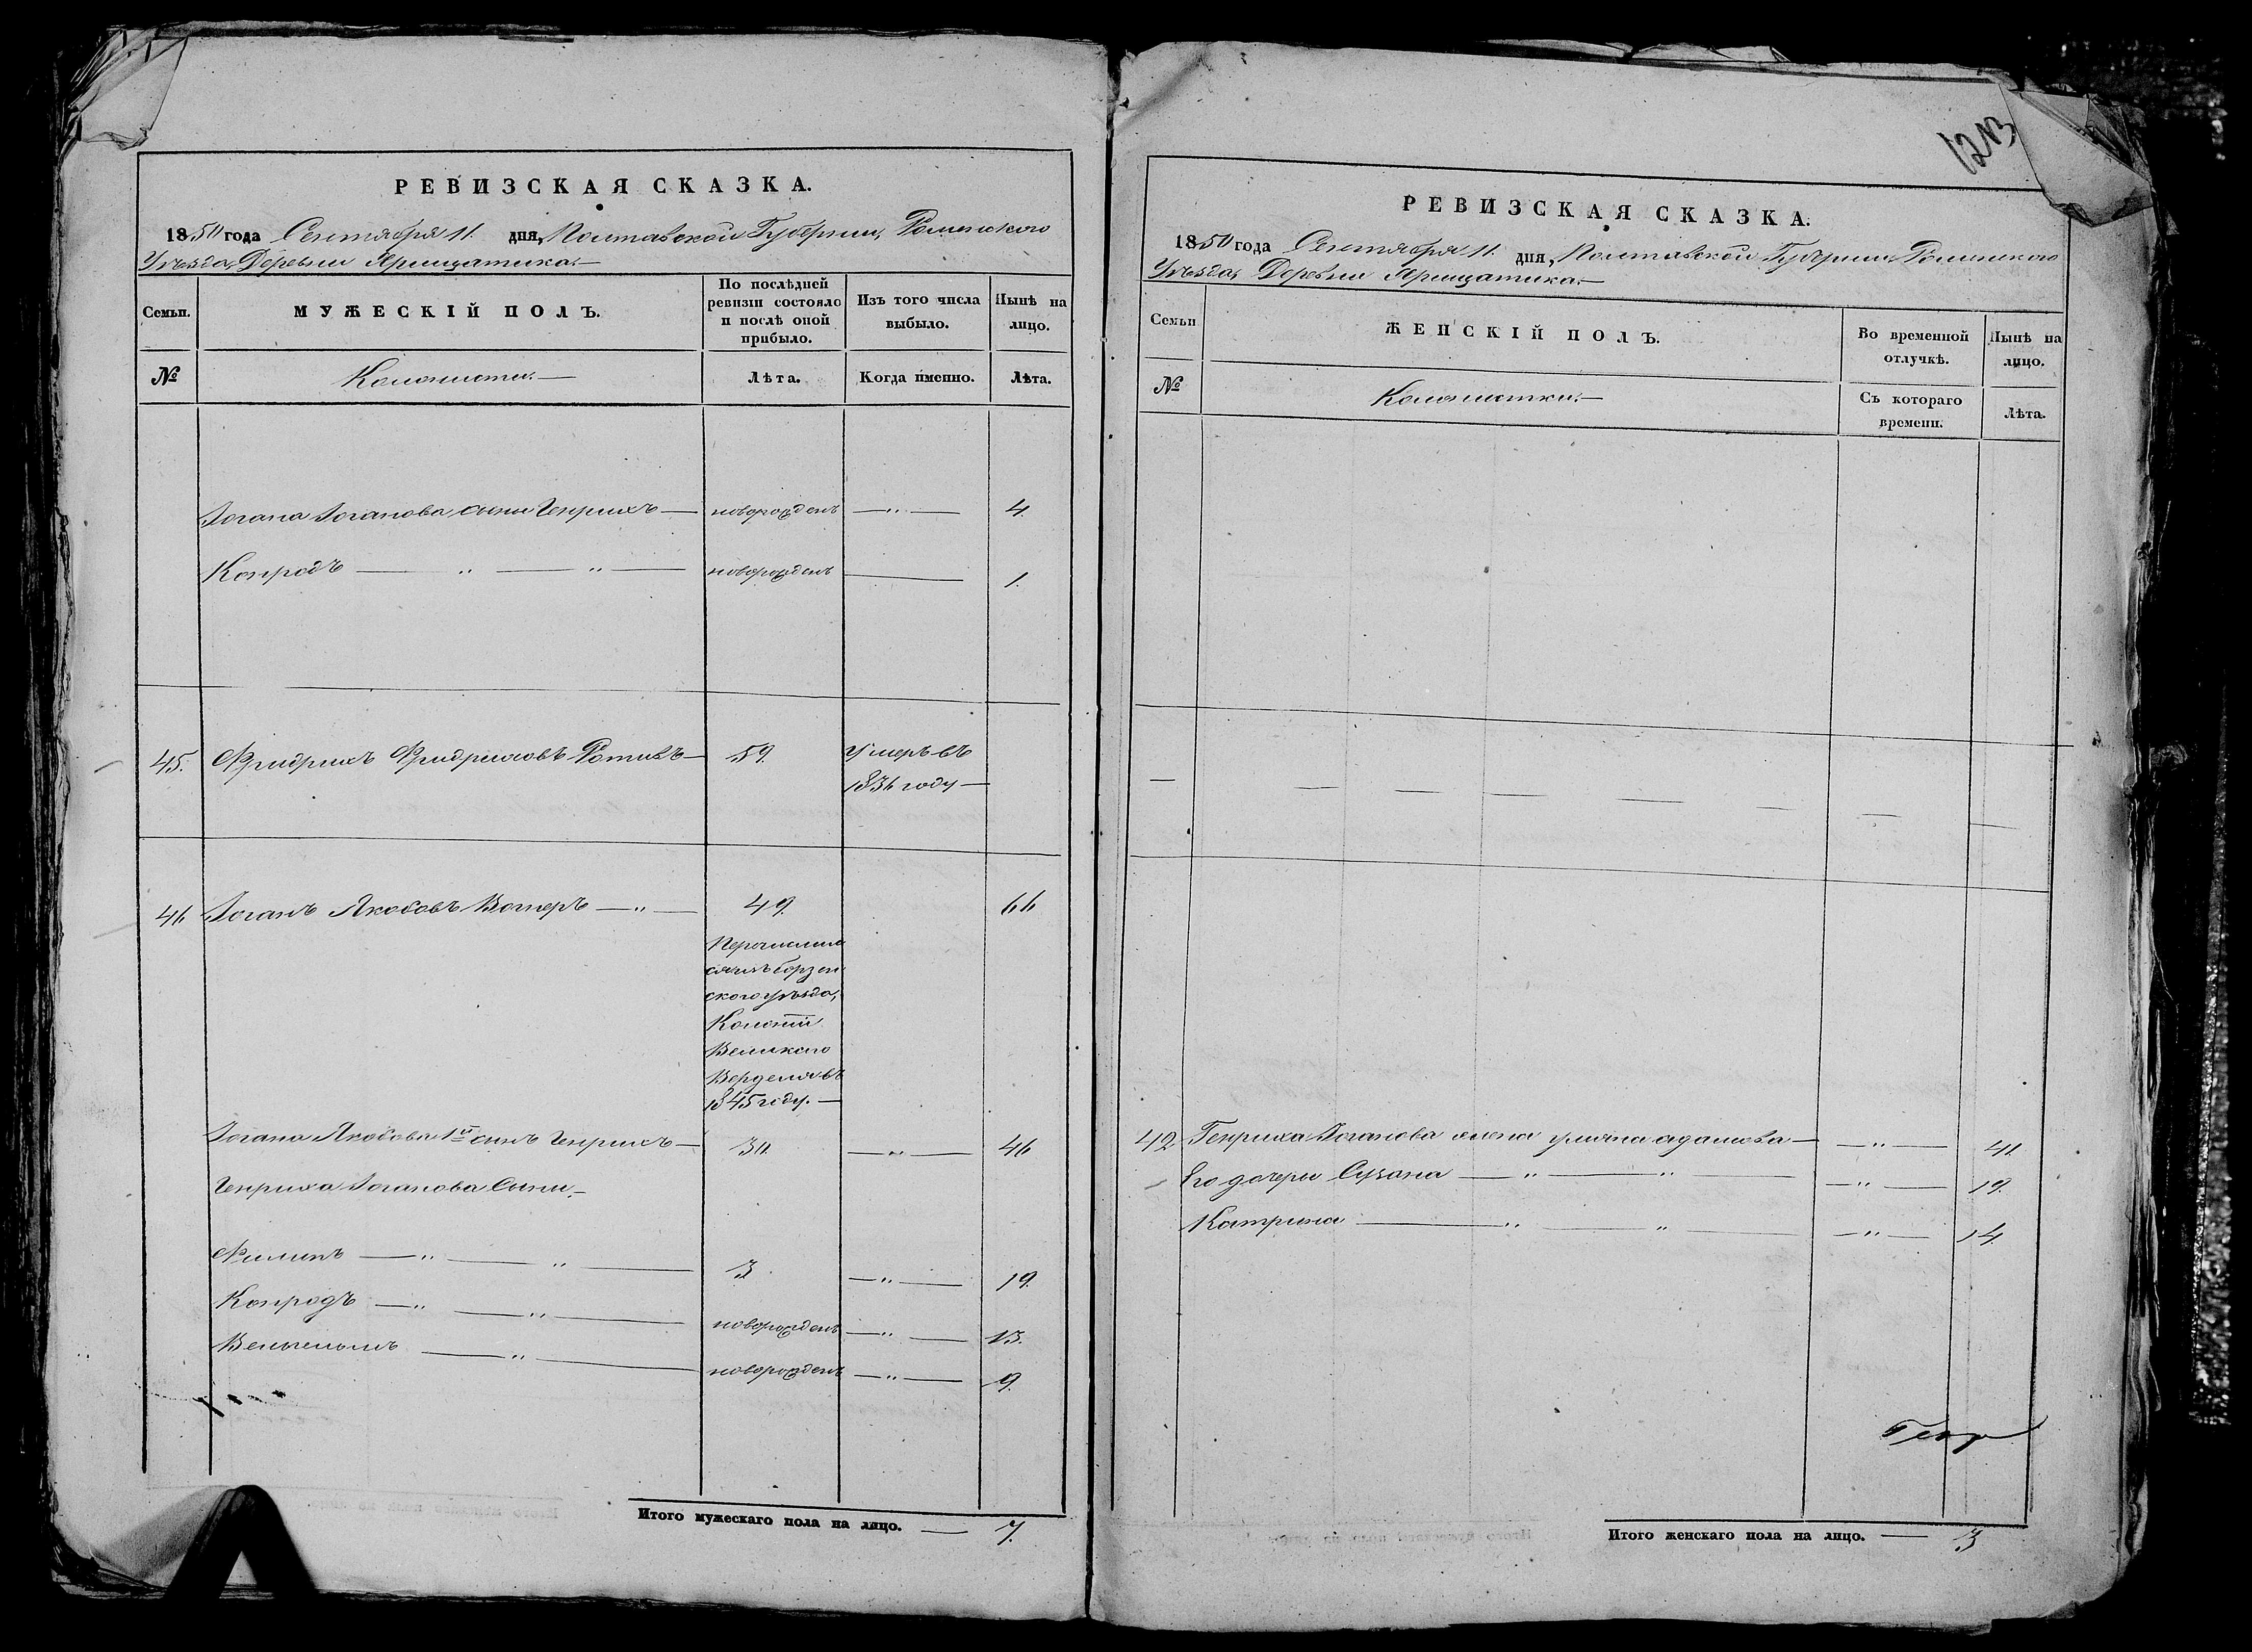 РЕВИЗСКАЯ СКАЗКА.
1850 года Сентября 11. дня, Полтавской Губернии, Роменского
Уѣзда, Деревни
Семьи.
МУЖЕСКІЙ ПОЛЪ.
По послѣдней
ревизіи состояло
и послѣ оной
прибыло.
Изъ того числа
выбыло.
Нынѣ на
лицо.
№
Колонисты.
Лѣта.
Когда именно.
Лѣта.
Іогана Іоганова сыны Генрихъ — новорожденъ — 4.
Конрадъ — новорожденъ — 1.
45. Фридрихъ Фридриховъ — 59. Умеръ въ
1836 году —
46 Іоганъ Якобовъ Вагнеръ — 49. 66
Перечислил
ся изъ Борзен
ского уѣзда,
Колоніи
Великого
Вердеръ въ
1845 году. —
Іогана Якобова 1й сынъ Генрихъ — 30. — 46
Генриха Іоганова Сыны. —
Филипъ — 3 — 19.
Конрадъ — новорожденъ — 13.
Вельгельмъ — новорожденъ — 9.
Итого мужескаго пола на лицо. — 7.
1213
РЕВИЗСКАЯ СКАЗКА.
1850 года Сентября 11. дня, Полтавской Губернии Роменского
Уѣзда, Деревни
Семьи
ЖЕНСКІЙ ПОЛЪ.
Во временной
отлучкѣ.
Нынѣ на
лицо.
№
Колонистки. —
Съ котораго
времени.
Лѣта.
Генриха Іоганова жена адамова — 41.
Его дочери Сузана — 19.
Катрина — 14.
Итого женскаго пола на лицо. — 3